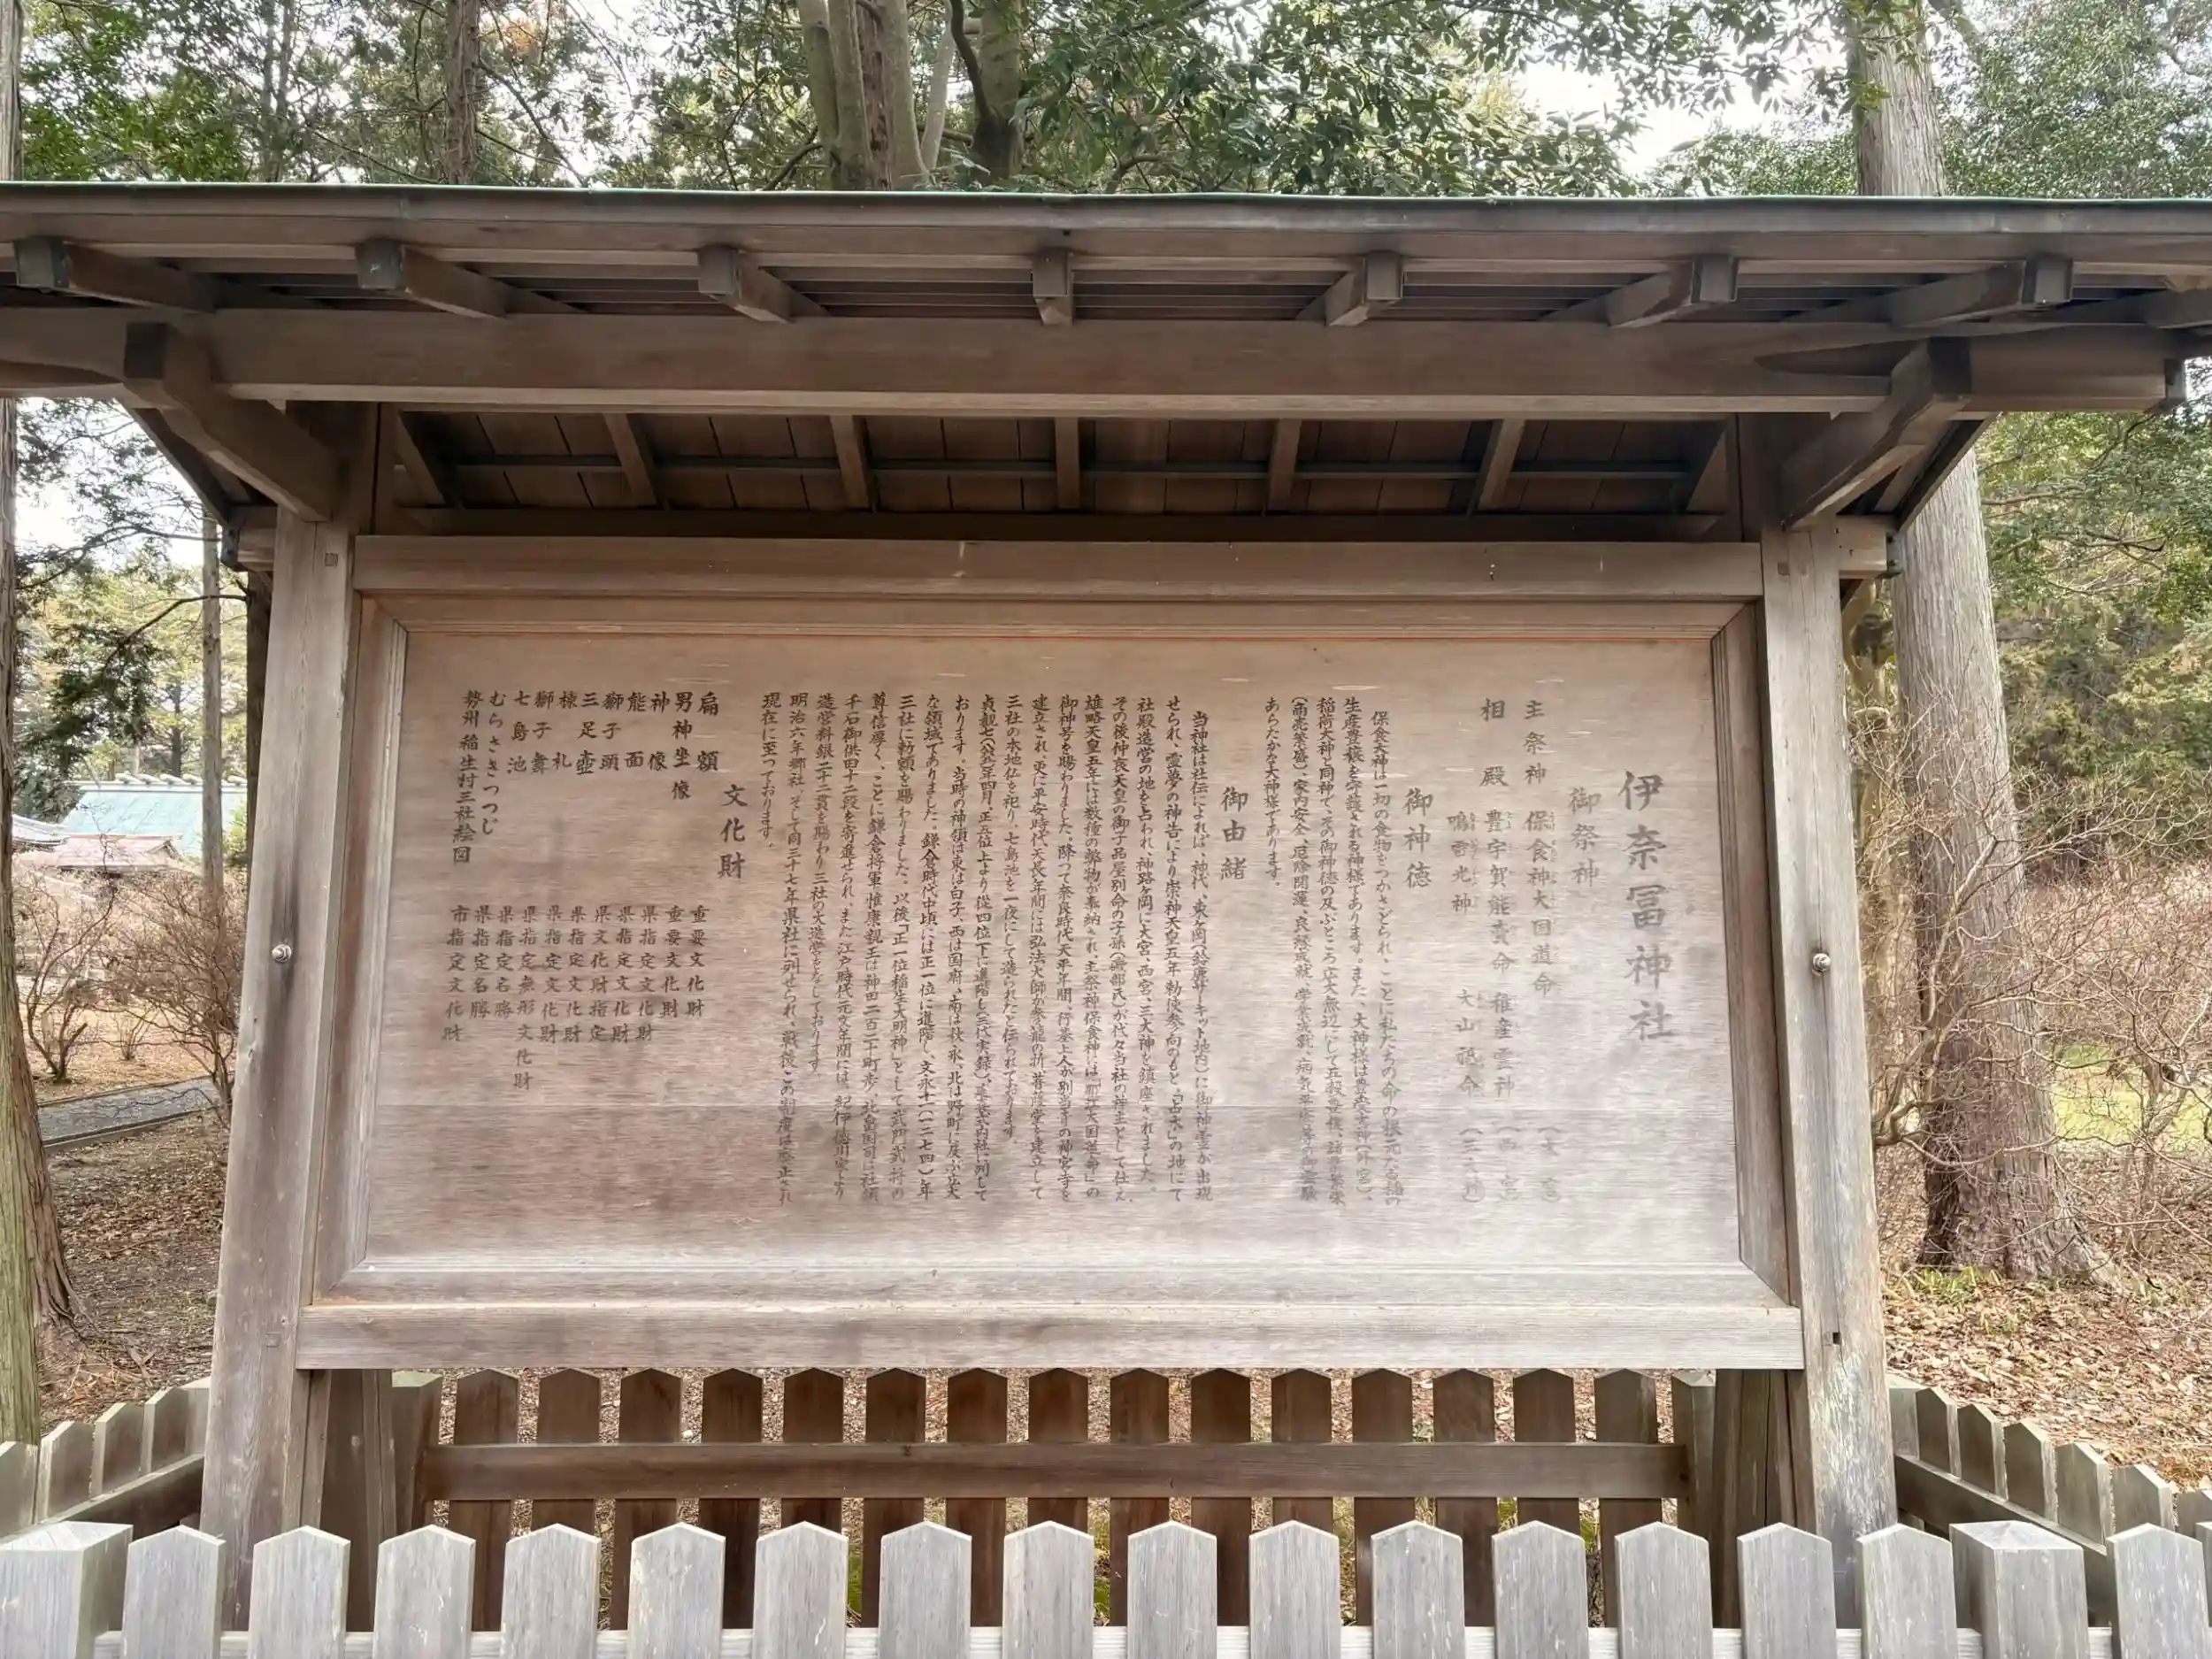 伊奈冨神社
御祭神
主祭神 保食神 大国道命 (大 宮)
相 殿 豊宇賀能売命 稚産霊神 (西 宮)
鳴雷光神 大山祇命 (三大神)
御神徳
保食大神は一切の食物をつかさどられ、ことに私たちの命の根元た
生産豊穣を守護される神様であります。また、大神様は豊受大神(外宮)、
稲荷大神と同神で、その御神徳の及ぶところ広大無辺にして五穀豊穣、諸業繁栄
(商売繁盛)、家内安全、厄除開運、良縁成就、学業成就、病気平癒等の御霊験
あらたかな大神様であります。
御由緒
当神社は社伝によれば、神代、東ヶ岡(鈴鹿サーキット地内)に御神霊が出現
せられ、霊夢の神告により崇神天皇五年勅使参向のもと、「占木」の地にて
社殿造営の地を占われ、神路ヶ岡に大宮、西宮、三大神を鎮座されました。
その後仲哀天皇の御子品屋別命の子孫(磯部氏)が代々当社の神主として仕え、
雄略天皇五年には数種の幣物が奉納され、主祭神保食神には「那江大国道命」の
御神号を賜わりました。降つて奈良時代天平年間、行基上人が別当寺の神宮寺を
建立され、更に平安時代天長年間には弘法大師が参籠の折、菩薩堂を建立して
三社の本地仏を祀り、七島池を一夜にして造られたと伝られております。
貞観七(八六五)年四月、正五位上より従四位下に進階し(三代実録)、延喜式内社に列して
おります。当時の神領は東は白子、西は国府、南は秋永、北は野町に及ぶ広大
な領域でありました。鎌倉時代中頃には正一位に進階し、文永十一(一二七四)年
三社に勅額を賜わりました。以後「正一位稲生大明神」として武門武将の
尊信導く、ことに鎌倉将軍惟康親王は神田二百二十町歩、北畠国司は社領
千石御供田十二段を寄進せられ、また江戸時代元文年間には、紀伊徳川家より
造営料銀二十二貫を賜わり三社の大造営をなしております。
明治六年郷社、そして同三十七年県社に列せられ、戦後この制度は廃止され
現在に至つております。
文化財
扁額 重要文化財
男神坐像 重要文化財
神像 県指定文化財
能面 県指定文化財
獅子頭 県文化財指定
三足壷 県指定文化財
棟札 県指定文化財
獅子舞 県指定無形文化財
七島池 県指定名勝
むらさきつつじ 県指定名勝
勢州稲生村三社絵図 市指定文化財